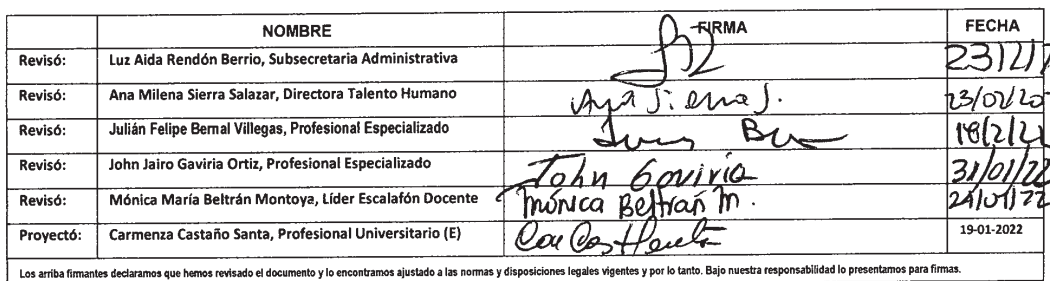 NOMBRE FIRMA FECHA
Revisó: Luz Aida Rendón Berrio, Subsecretaria Administrativa 23/2/2
Revisó: Ana Milena Sierra Salazar, Directora Talento Humano Ana Sierra S. 23/02/20
Revisó: Julián Felipe Bernal Villegas, Profesional Especializado 18/2/22
Revisó: John Jairo Gaviria Ortiz, Profesional Especializado John Gaviria 31/01/22
Revisó: Mónica María Beltrán Montoya, Líder Escalafón Docente Mónica Beltrán M. 24/01/22
Proyectó: Carmenza Castaño Santa, Profesional Universitario (E) 19-01-2022
Los arriba firmantes declaramos que hemos revisado el documento y lo encontramos ajustado a las normas y disposiciones legales vigentes y por lo tanto. Bajo nuestra responsabilidad lo presentamos para firmas.